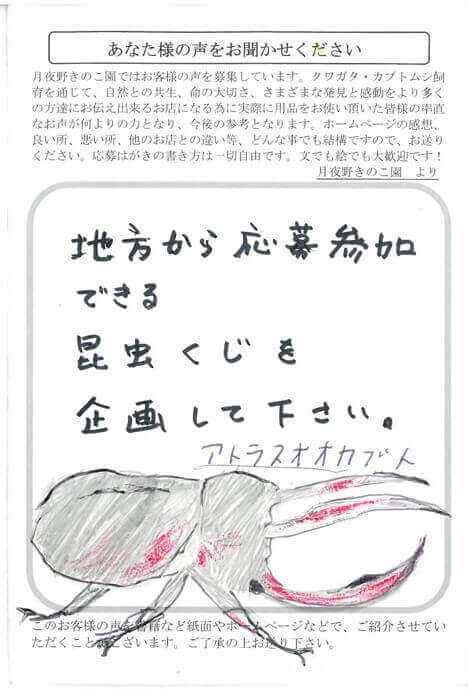 あなた様の声をお聞かせください
月夜野きのこ園ではお客様の声を募集しています。クワガタ・カブトムシ飼
育を通じて、自然との共生、命の大切さ、さまざまな発見と感動をより多く
の方達にお伝え出来るお店になる為に実際に用品をお使い頂いた皆様の率直
なお声が何よりの力となり、今後の参考となります。ホームページの感想、
良い所、悪い所、他のお店との違い等、どんな事でも結構ですので、お送り
ください。応募はがきの書き方は一切自由です。文でも絵でも大歓迎です！
月夜野きのこ園　より
地方から応募参加
できる
昆虫くじを
企画して下さい。
アトラスオオカブト
このお客様の声を書籍など紙面やホームページなどで、ご紹介させてい
ただくことがございます。ご了承の上お送り下さい。